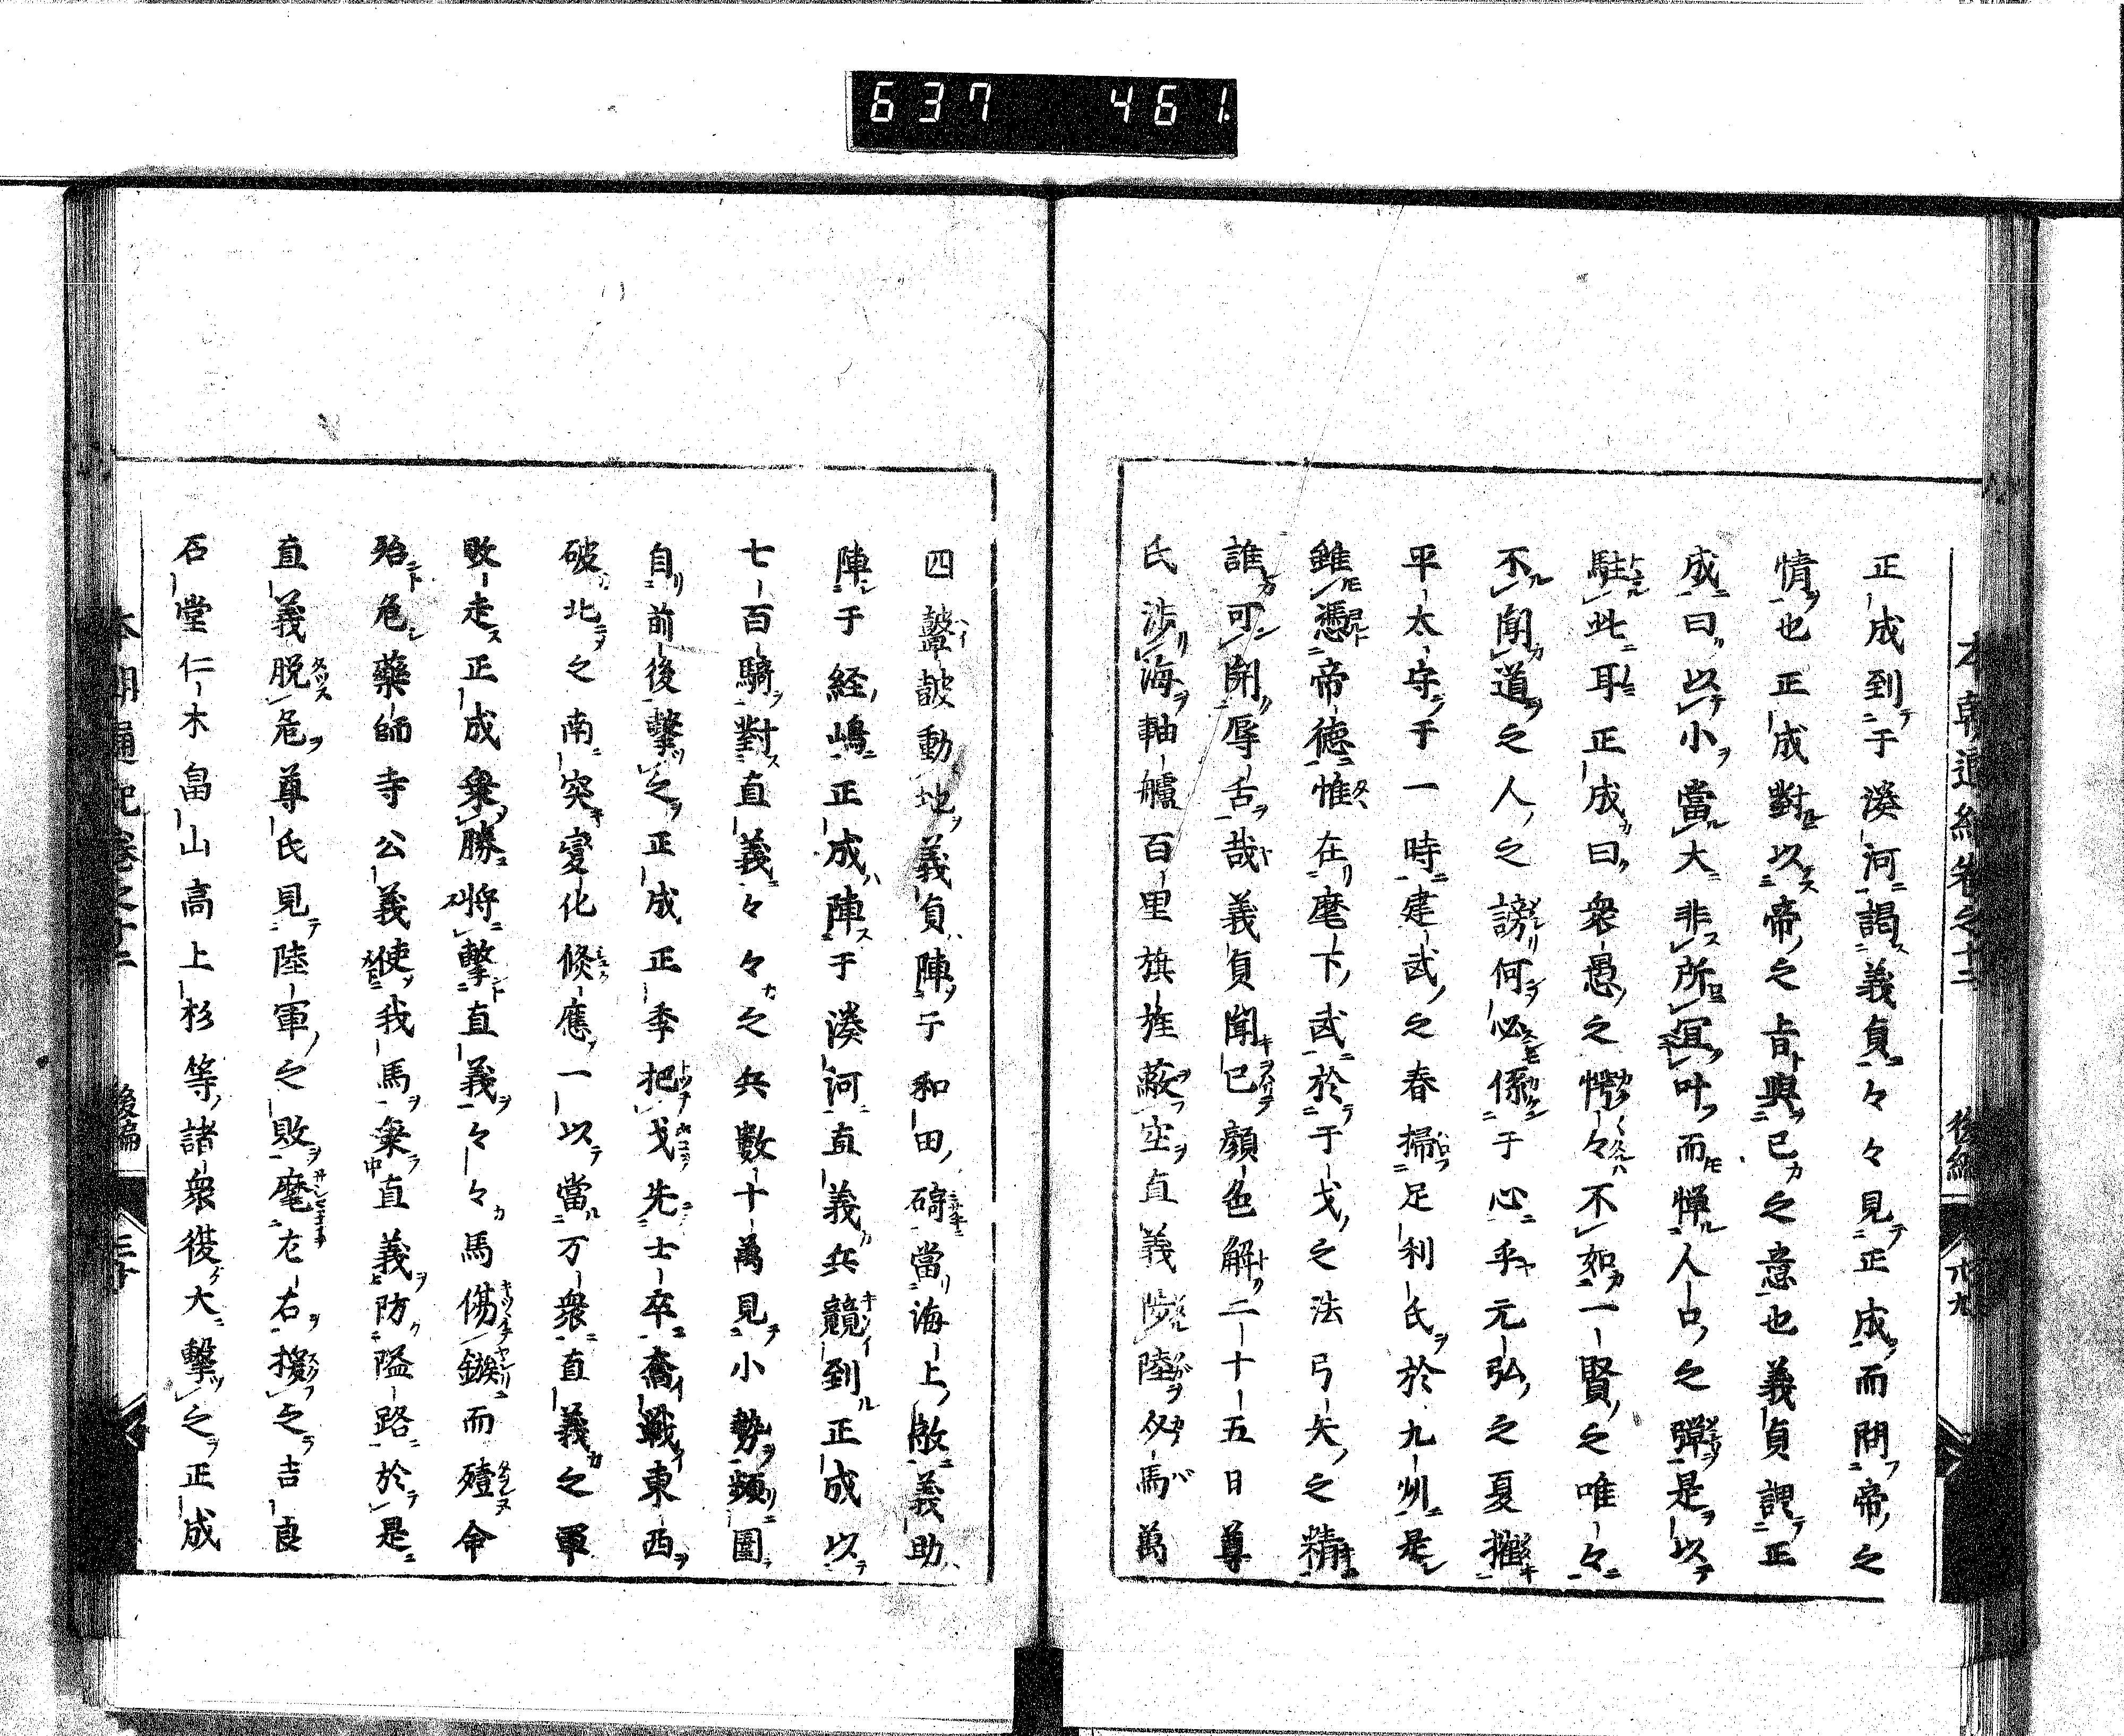 637 461
本朝通紀卷之十二 後編 廿九
正成到于湊河謁義貞々々見正成而問帝之
情也正成對以帝之旨與己之意也義貞謂正
成曰以小當大非所宜叶而憚人口之彈是以
駐此耳正成曰衆愚之愕々不如一賢之唯々
不聞道之人之謗何必係于心乎元弘之夏摧
平太守于一時建武之春掃足利氏於九州是
雖憑帝德惟在麾下武於于戈之法弓矢之精
誰可開辱舌哉義貞聞已顏色解二十五日尊
氏渉海軸艫百里旗旌蔽空直義陟陸匁馬萬
四鼙皷動地義貞陣于和田碕當海上敵義助
陣于経嶋正成陣于湊河直義兵競到正成以
七百騎對直義々々之兵數十萬見小勢頻圍
自前後擊之正成正季把戈先士卒奮戰東西
破北之南突変化倏應一以當万衆直義之軍
敗走正成棄勝將擊直義々々馬傷鏃而殪命
殆危藥師寺公義使我馬棄直義防隘路於是
直義脱危尊氏見陸軍之敗麾左右援之吉良
石堂仁木畠山高上杉等諸衆從大擊之正成
本朝通紀卷之十二 後編 三十